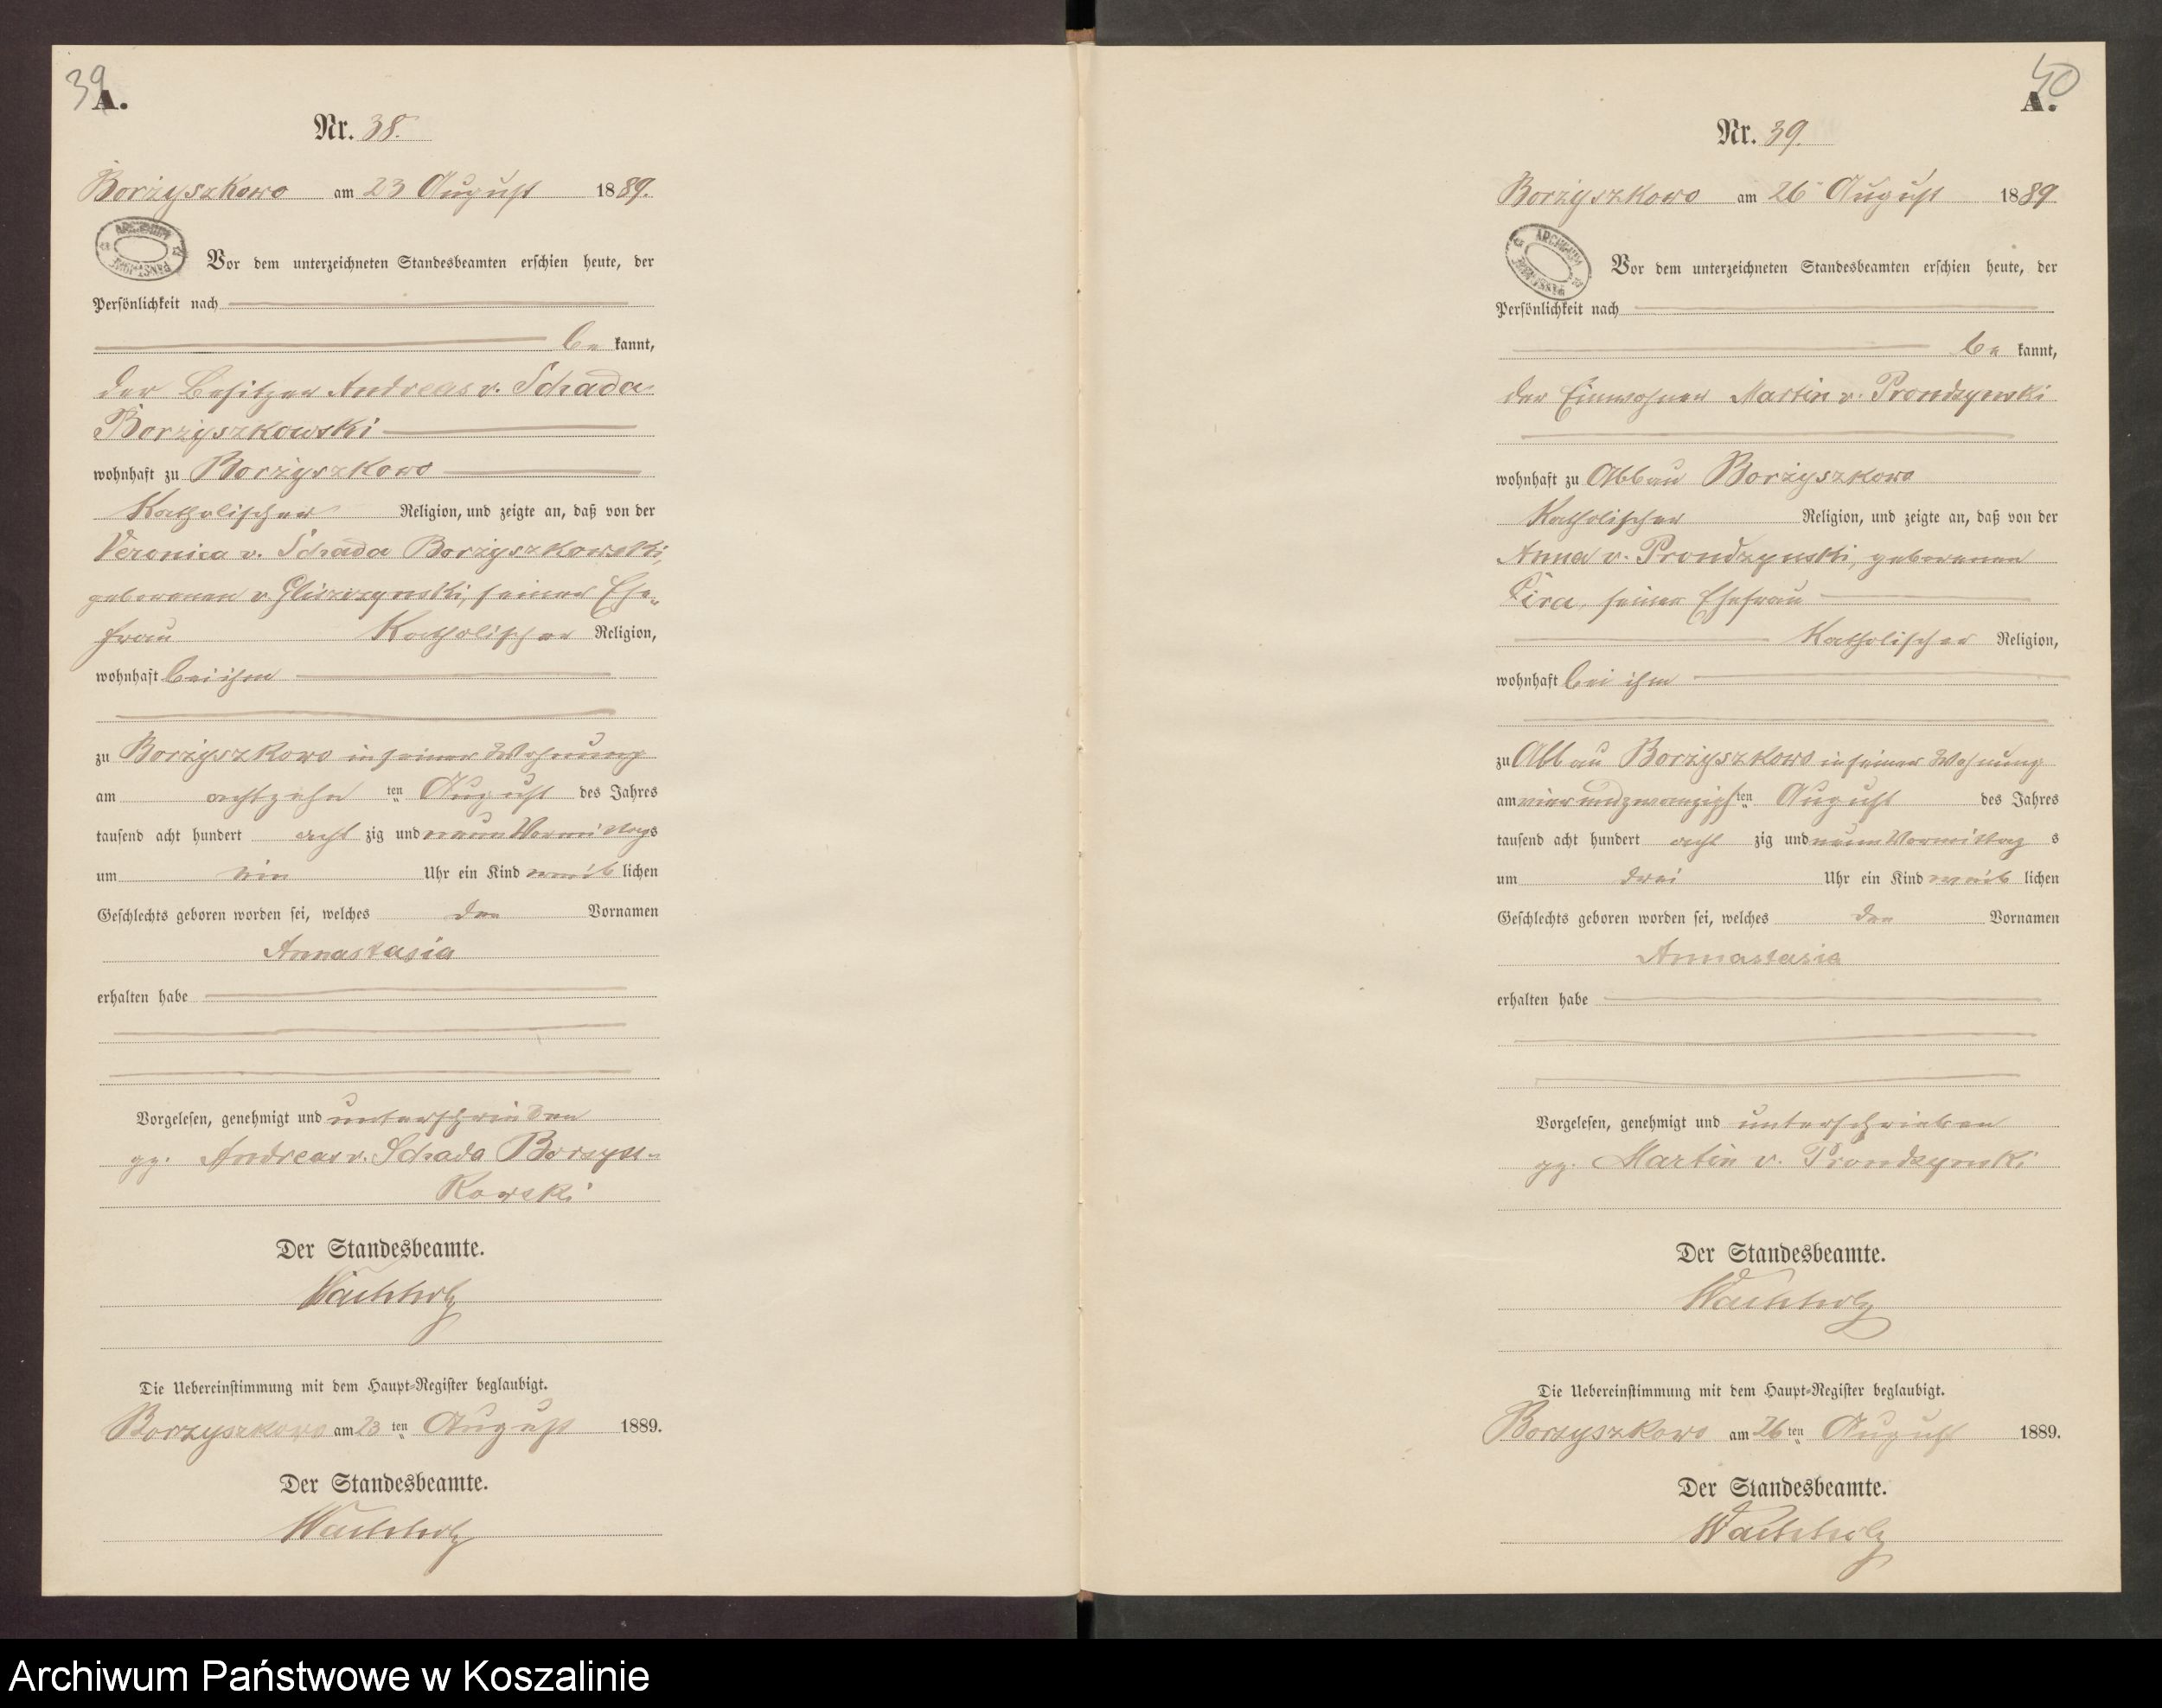 39
A.
Nr. 38.
Borzyszkowo am 23 August 1889.
Vor dem unterzeichneten Standesbeamten erschien heute, der
Persönlichkeit nach
be kannt,
der Besitzer Andreas v. Schada
Borzyszkowski
wohnhaft zu Borzyszkowo
Katholischer Religion, und zeigte an, daß von der
Veronica v. Schada Borzyszkowski,
geborenen v. Gliszczynski, seiner Ehe„
frau Katholischer Religion,
wohnhaft bei ihm
zu Borzyszkowo in seiner Wohnung
am achtzehn ten August des Jahres
tausend acht hundert acht zig und neun Vormittags
um ein Uhr ein Kind weib lichen
Geschlechts geboren worden sei, welches den Vornamen
Annastasia
erhalten habe
Vorgelesen, genehmigt und unterschrieben
gz. Andreas v. Schada Borzysz-
kowski
Der Standesbeamte.
Wachholz
Die Uebereinstimmung mit dem Haupt-Register beglaubigt.
Borzyszkowo am 23 ten August 1889.
Der Standesbeamte.
Wachholz
40
A.
Nr. 39.
Borzyszkowo am 26 August 1889
Vor dem unterzeichneten Standesbeamten erschien heute, der
Persönlichkeit nach
be kannt,
der Einwohner Martin v. Prondzynski
wohnhaft zu Abbau Borzyszkowo
Katholischer Religion, und zeigte an, daß von der
Anna v. Prondzynski, geborenen
seiner Ehefrau
Katholischer Religion,
wohnhaft bei ihm
zu Abbau Borzyszkowo in seiner Wohnung
am vier und zwanzigsten August des Jahres
tausend acht hundert acht zig und neun Vormittag s
um drei Uhr ein Kind weib lichen
Geschlechts geboren worden sei, welches den Vornamen
Annastasia
erhalten habe
Vorgelesen, genehmigt und unterschrieben
gz. Martin v. Prondzynski
Der Standesbeamte.
Wachholz
Die Uebereinstimmung mit dem Haupt-Register beglaubigt.
Borzyszkowo am 26 ten August 1889.
Der Standesbeamte.
Wachholz
Archiwum Państwowe w Koszalinie